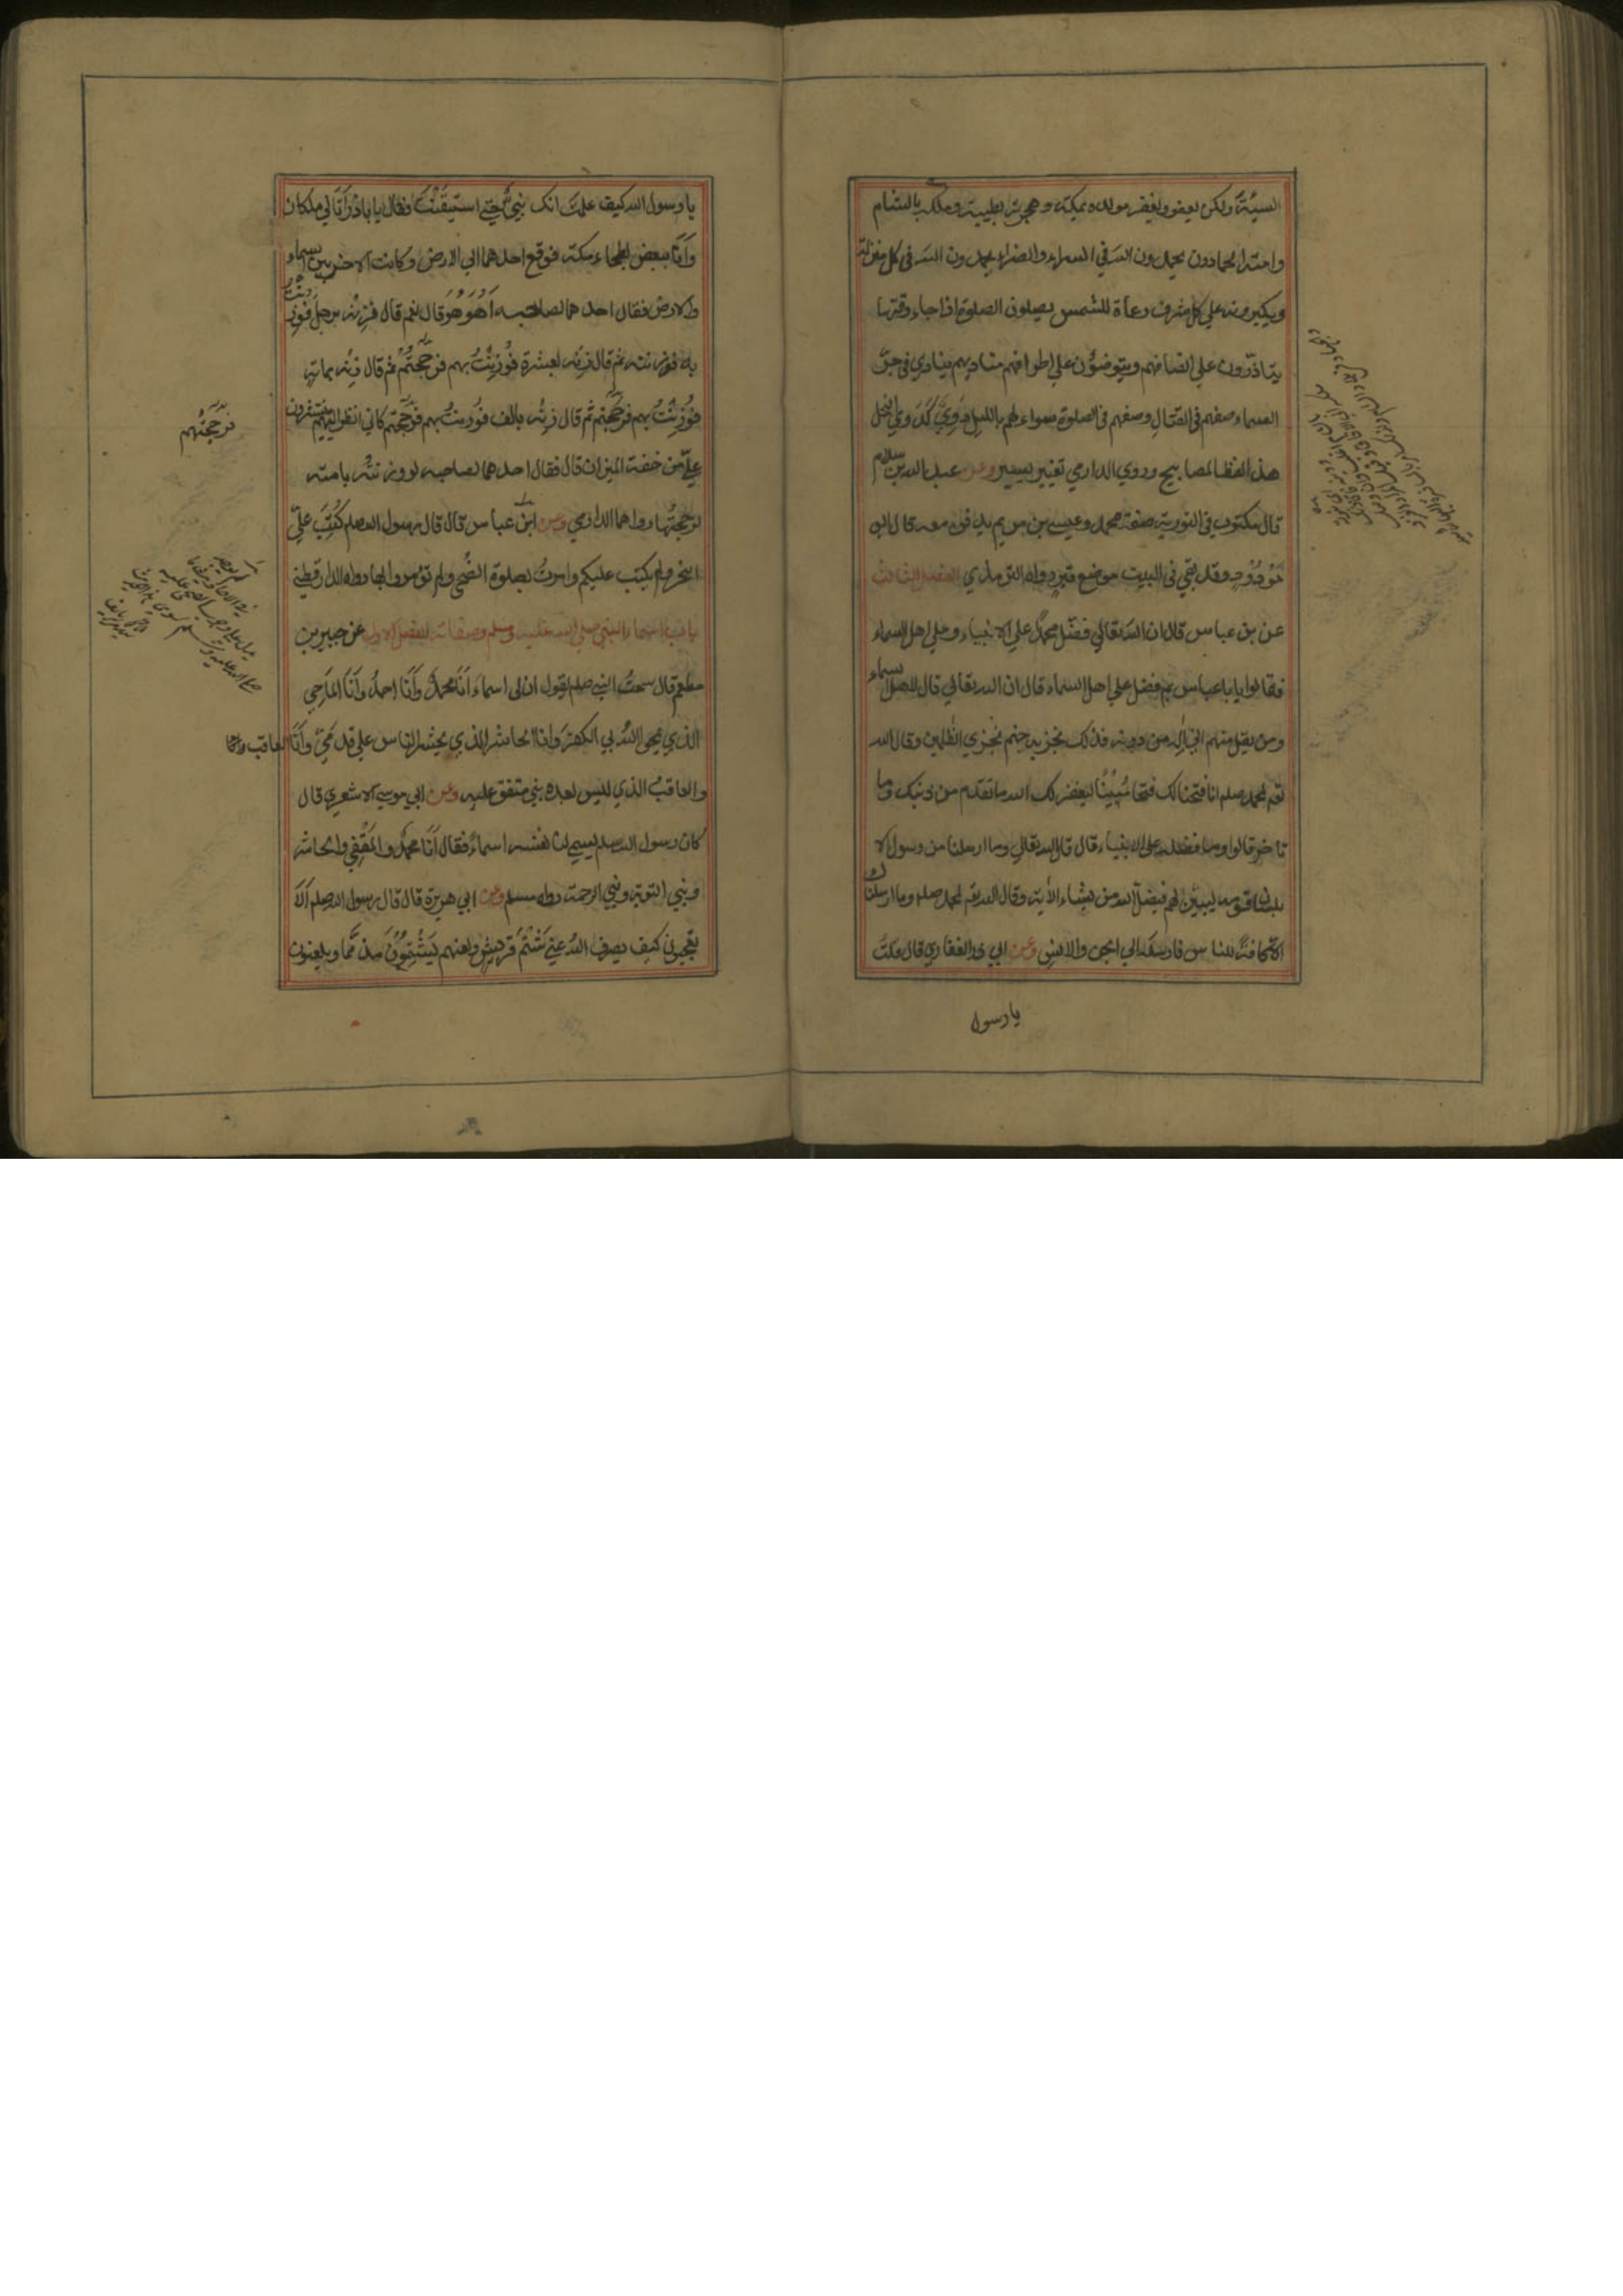 السيئة ولكن يعفو ويغفر مولده بمكة وهجرته بطيبة وملكه بالشام
وامته الحمادون يحمدون الله في السراء والضراء يحمدون الله في كل منزلة
ويكبرونه على كل شرف رعاة للشمس يصلون الصلوة اذا جاء وقتها
يتأزرون على انصافهم ويتوضؤن على اطرافهم مناديهم ينادي في جو
السماء صفهم في القتال وصفهم في الصلوة سواء لهم بالليل دوي كدوي النحل
هذا لفظ المصابيح وروي الدارمي تغيير يسير وعن عبد الله بن سلام
قال مكتوب في التورية صفة محمد وعيسى بن مريم يدفن معه قال ابو
مودود وقد بقي في البيت موضع قبر رواه الترمذي الفصل الثالث
عن بن عباس قال ان الله تعالي فضل محمدًا علي الانبياء وعلي اهل السماء
فقالوا يا باعباس بم فضل علي اهل السماء قال ان الله تعالي قال لاهل السماء
ومن يقل منهم اني اله من دونه فذلك نجزيه جهنم نجزي الظلمين وقال الله
تعم لمحمد صلم انا فتحنا لك فتحا مبينًا ليغفر لك الله ما تقدم من ذنبك وما
تاخر قالوا وما فضله على الانبياء قال قال الله تعالي وما ارسلنا من رسول الا
بلسان قومه ليبين لهم فيضل الله من يشاء الآية وقال الله تعم لمحمد صلم وما ارسلناك
الا كافة للناس فارسله الي الجن والانس وعن ابي ذر الغفاري قال قلت
يا رسول
يا رسول الله كيف علمت انك نبي حتي استيقنت فقال يا باذر اتاني ملكان
وانا ببعض بطحاء مكة فوقع احدهما الي الارض وكانت الاخر بين السماء
والارض فقال احدهما لصاحبه اهو هو قال نعم قال فزنه برجل فوزنت
به فوزنته ثم قال زنه بعشرة فوزنت بهم فرجحتهم ثم قال زنه بماية
فوزنت بهم فرجحتهم ثم قال زنه بالف فوزنت بهم فرجحتهم كاني انظر اليهم ينتثرون
علي من خفة الميزان قال فقال احدهما لصاحبه لو وزنته بامته
لرجحتها رواهما الدارمي وعن ابن عباس قال قال رسول الله صلم كتب علي
النحر ولم يكتب عليكم وامرت بصلوة الضحى ولم تؤمروا بها رواه الدارقطني
باب اسماء النبي صلي الله عليه وسلم وصفاته الفصل الاول عن جبير بن
مطعم قال سمعت النبي صلم يقول ان لى اسماء انا محمد وانا احمد وانا الماحي
الذي يمحي الله بي الكفر وانا الحاشر الذي يحشر الناس علي قدمي وانا العاقب
والعاقب الذي ليس بعده نبي متفق عليه وعن ابي موسي الاشعري قال
كان رسول الله صلم يسمي لنا نفسه اسماء فقال انا محمد والمقفي والحاشر
ونبي التوبة ونبي الرحمة رواه مسلم وعن ابي هريرة قال قال رسول الله صلم الا
تعجبون كيف يصرف الله عني شتم قريش ولعنهم يشتمون مذمما ويلعنون
فرجحتهم